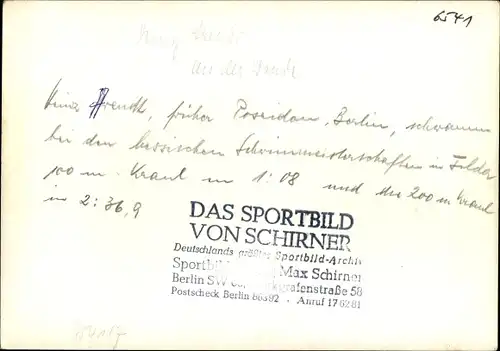 6541
an der Bande
Heinz Arendt, früher Poseidon, Berlin, schwamm
bei den hessischen Schwimmeisterschaften in Fulda
100 m - Kraul in 1:08 und die 200 m Kraul
in 2:36,9
DAS SPORTBILD
VON SCHIRNER
Deutschlands größtes Sportbild-Archiv
Sportbild Max Schirner
Berlin SW grafenstraße 58
Postscheck Berlin 86392 . Anruf 176281